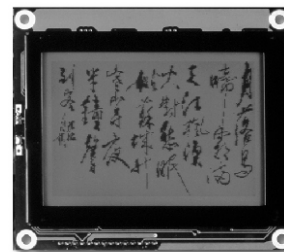 月落烏
啼霜滿
天江楓漁
火對愁眠
姑蘇城外
寒山寺夜
半鐘聲
到客船